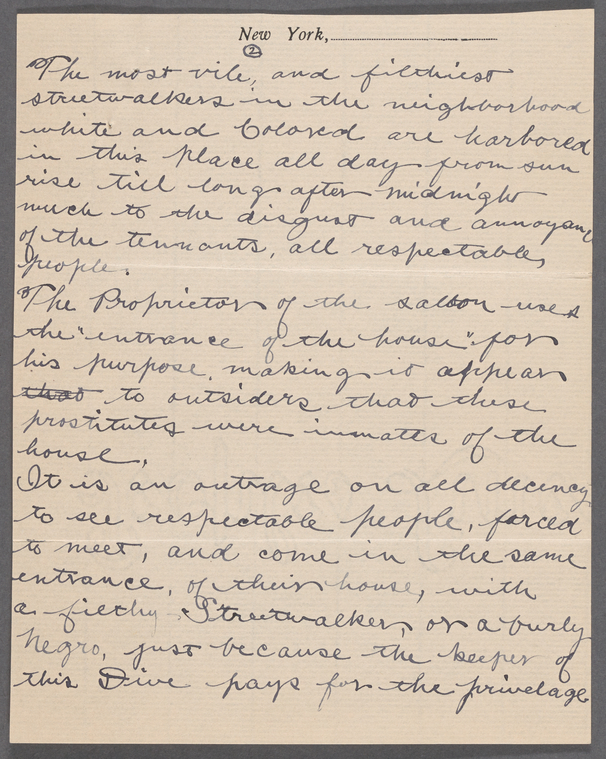 New York,
2
The most vile, and filthiest
streetwalkers in the neighborhood
white and Colored are harbored
in this place all day from sun
rise till long after midnight
much to the disgust and annoyanc
of the tennants, all respectable,
people.
The Proprietor of the saloon uses
the "entrance of the house" for
his purpose, making it appear
that to outsiders that these
prostitutes were inmates of the
house.
It is an outrage on all decency
to see respectable people, forced
to meet, and come in the same
entrance, of their house, with
a filthy Streetwalker, or a burly
Negro, just because the keeper of
this Dive pays for the privelage